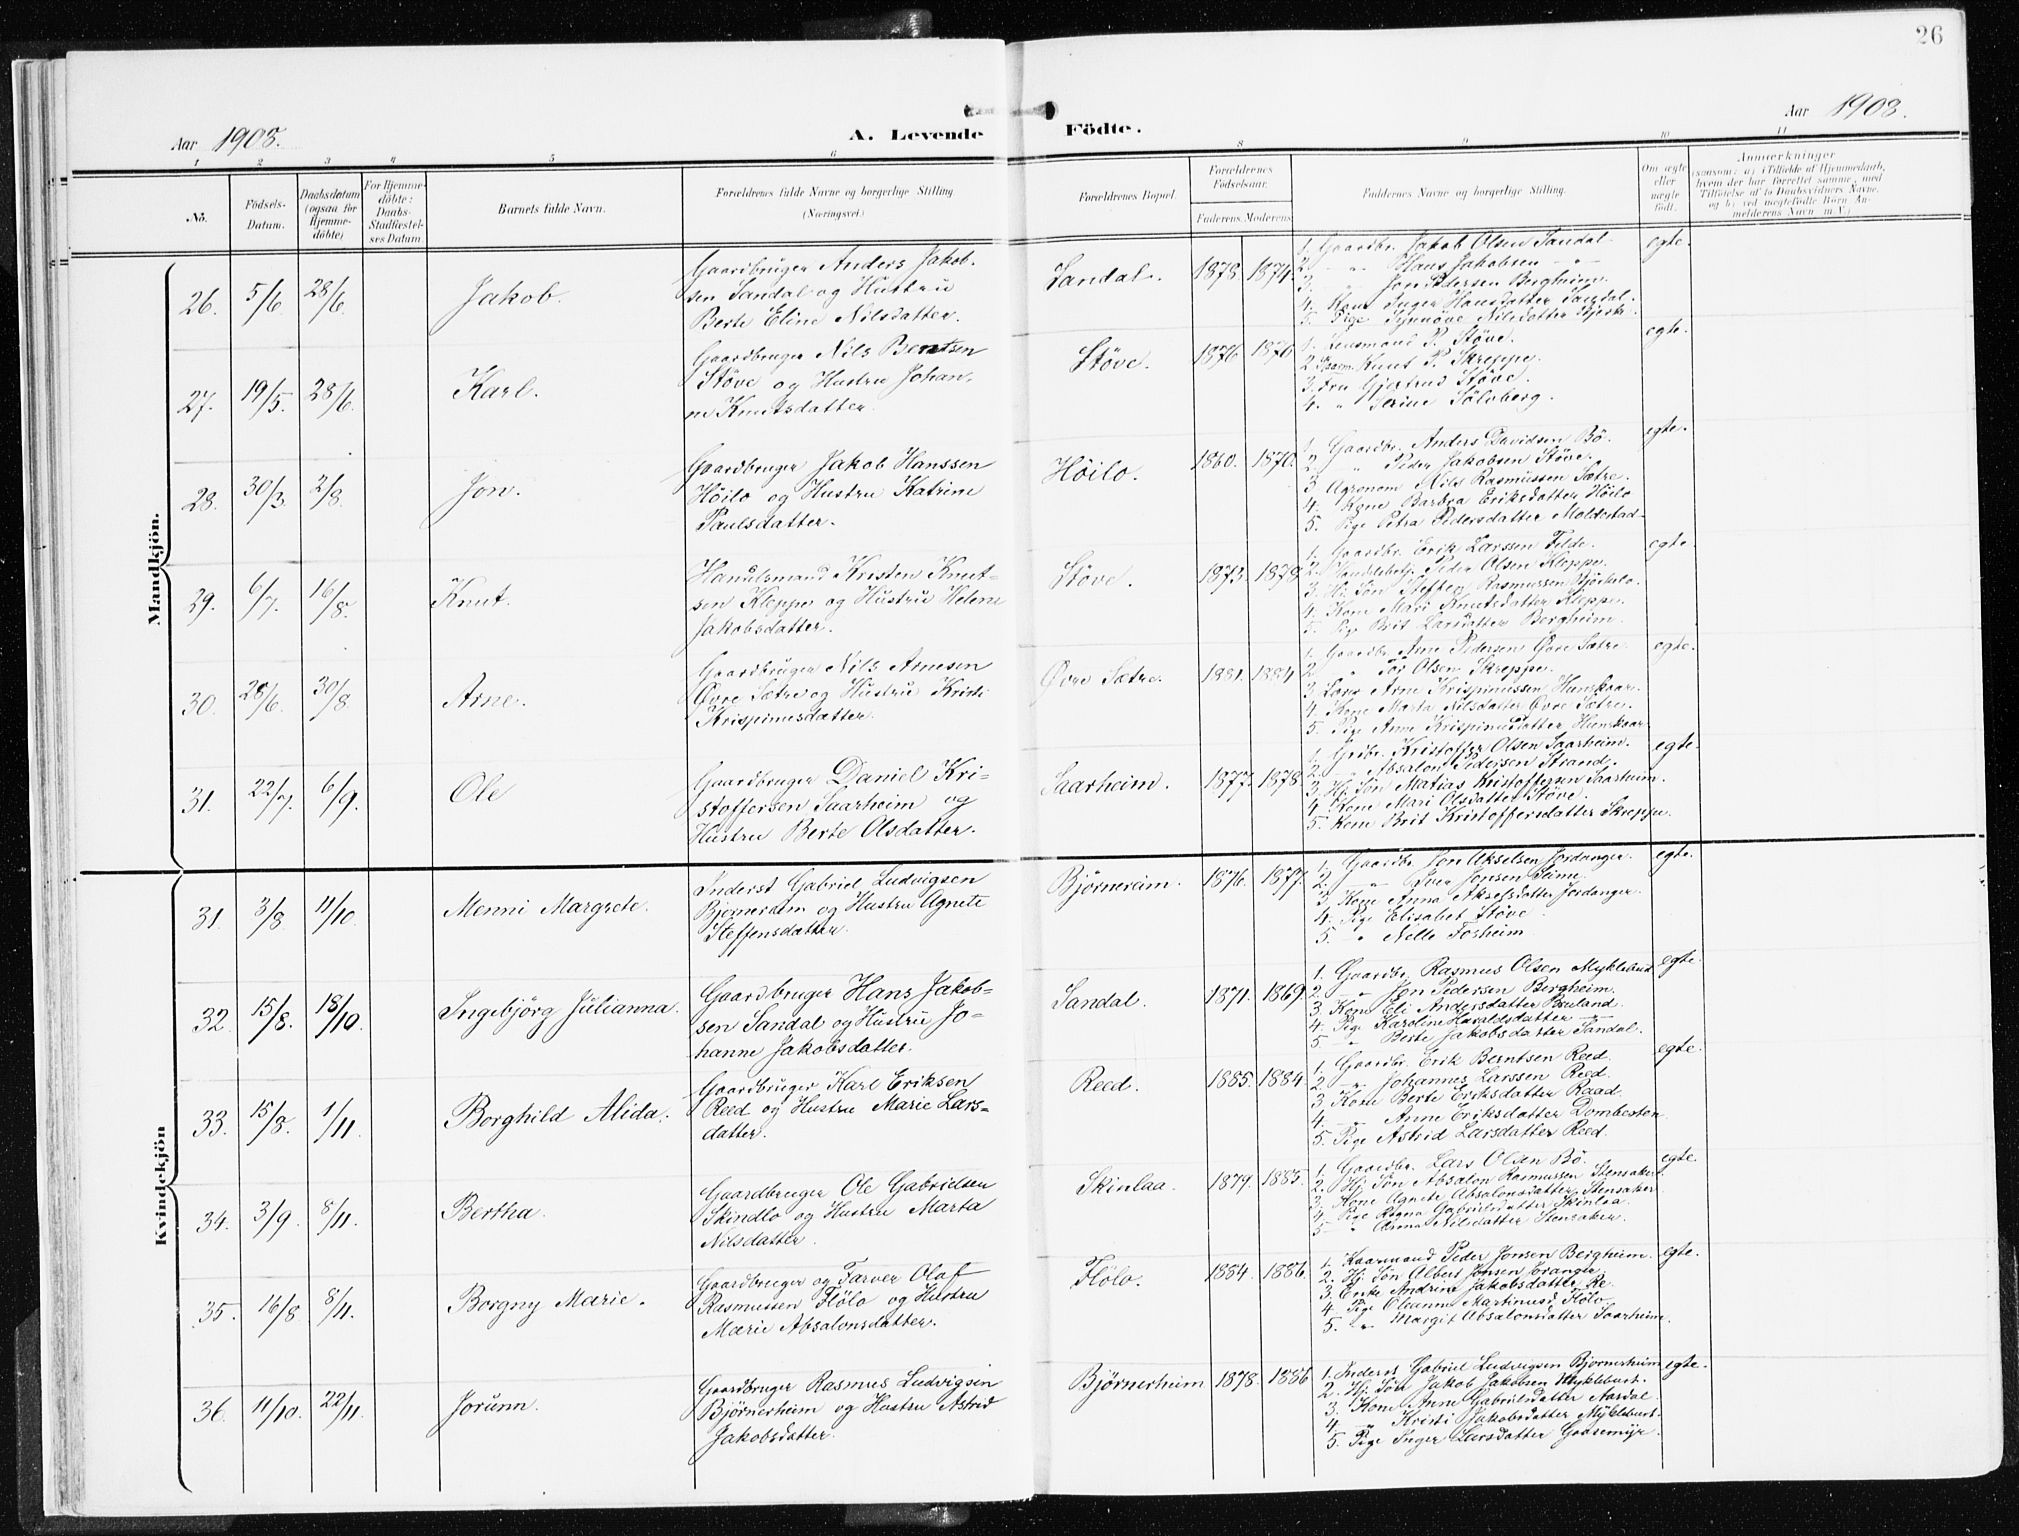 26
Aar 1908.
A. Levende Födte.
Aar 1908.
1 2 3 4 5 6 8 9 10 11
No.
Födsels-Datum.
Daabsdatum (ogsaa för Hjemme-döbte)
For Hjemme-döbte: Daabs-Stadfæstel-ses Datum
Barnets fulde Navn.
Forældrenes fulde Navne og borgerlige Stilling (Næringsvei.)
Forældrenes Bopæl.
Forældrenes Födselsaar.
Faderens. Moderens.
Faddernes Navne og borgerlige Stilling.
Om ægte eller uægte födt.
Anmærkninger
(saasom: a) i Tilfælde af Hjemmedaab, hvem der har forrettet samme, med Tilföielse af to Daabsvidners Navne, og b) ved uægtefödte Börn An-melderens Navn m. V.)
Mandkjön.
26. 5/6 28/6 Jakob.
Gaardbruger Anders Jakob-
sen Sandal og Hustru
Berte Eline Nilsdatter.
Sandal. 1878 1874.
1. Gaardbr. Jakob Olsen Sandal.
2. — " Hans Jakobsen — " —
3. — " Jon Pedersen Bergheim.
4. Kone Inger Hansdatter Sandal.
5. Pige Synnöve Nilsdatter
egte.
27. 19/5. 28/6 Karl.
Gaardbruger Nils Berntsen
Stöve og Hustru Johan-
ne Knutsdatter.
Stöve. 1876 1876
1. Lensmand P. Stöve.
2. Knut P. Skreppe.
3. Fru Gjertrud Stöve.
4. " Serine Sölvberg.
egte.
28. 30/3 2/8. Jon.
Gaardbruger Jakob Hanssen
Höilo og Hustru Katrine
Paulsdatter.
Höilo. 1860. 1870.
1. Gaardbr. Anders Davidsen Bö.
2. " Peder Jakobsen Stöve.
3 Agronom Nils Rasmussen Sætre.
4. Kone Bardra Eriksdatter Höilo
5. Pige Petra Pedersdatter Moldestad
egte.
29. 6/7. 16/8. Knut.
Handelsmand Kristen Knut-
sen Kleppe og Hustru Helene
Jakobsdatter.
Stöve. 1873. 1879.
1. Gaardbr. Erik Larssen Felde.
2. Handelsbetj. Peder Olsen Kleppe.
3. Hj. Sön Steffen Rasmussen Björkelo.
4. Kone Mari Knutsdatter Kleppe.
5. Pige Brit Larsdatter Bergheim.
egte.
30. 28/6. 30/8 Arne.
Gaardbruger Nils Arnesen
Øvre Sætre og Hustru Kristi
Krispinusdatter.
Øvre Sætre. 1881. 1884
1. Gaardbr. Arne Pedersen Øvre Sætre.
2. " Tor Olsen Skreppe.
3. Arne Krispinussen
4. Kone Marta Nilsdatter Øvre Sætre.
5. Pige Anne Krispinusdatter
egte.
31. 22/7. 6/9. Ole
Gaardbruger Daniel Kri-
stoffersen Saarheim og
Hustru Berte Olsdatter.
Saarheim. 1877. 1878.
1. Grdbr. Kristoffer Olsen Saarheim.
2. " Absalon Pedersen Strand.
3. Hj. Sön Matias Kristoffersen Saarheim.
4. Kone Mari Olsdatter Stöve.
5. Kone Brit Kristoffersdatter Skreppe.
egte.
Kvindekjön
31. 3/8. 11/10. Menni Margrete.
Inderst Gabriel Ludvigsen
Björnereim og Hustru Agnete
Steffensdatter.
Björnereim. 1876. 1877.
1. Gaardbr. Jon Akselsen Jordanger.
2. — " — Iver Jonsen Seime.
3 Kone Anna Akselsdatter Jordanger.
4. Pige Elisabet Stöve.
5. — " Nelle Forheim
egte.
32. 15/8. 18/10. Ingebjörg Julianna.
Gaardbruger Hans Jakob-
sen Sandal og Hustru Jo-
hanne Jakobsdatter.
Sandal. 1871. 1869
1. Gaardbr. Rasmus Olsen Myklebust
2. " Jon Pedersen Bergheim.
3. Kone Eli Andersdatter Bauland.
4. Pige Karoline Haraldsdatter — " —
5 " Berte Jakobsdatter Sandal.
egte.
33. 15/8. 1/11. Borghild Alida.
Gaardbruger Karl Eriksen
Reed og Hustru Marie Lars-
datter.
Reed. 1885. 1884.
1. Gaardbr. Erik Berntsen Reed.
2. " Johannes Larssen Reed.
3. Kone Berte Eriksdatter Raad.
4. — " Anne Eriksdatter Dombesten
5. Pige Astrid Larsdatter Reed.
egte.
34. 3/9. 8/11. Bertha.
Gaardbruger Ole Gabrielsen
Skindlo og Hustru Marta
Nilsdatter.
Skinlaa. 1879. 1885.
1. Gaardbr. Lars Olsen Bö.
2. Hj. Sön Absalon Rasmussen Stensaker.
3. Kone Agnete Absalonsdatter Stensaker.
4. Pige Ragna Gabrielsdatter Skinlaa.
5 " Anna Nilsdatter Stensaker.
egte.
35. 16/8 8/11. Borgny Marie.
Gaardbruger og Farver Olaf
Rasmussen Flölo og Hustru
Marie Absalonsdatter.
Flölo. 1884. 1886.
1. Kaarmand Peder Jonsen Bergheim.
2. Hj. Sön Albert Jonsen
3. Enke Andrine Jakobsdatter Re.
4. Pige Oleanna Martinusd. Flölo.
5. " Margit Absalonsdatter Saarheim.
egte.
36. 11/10. 22/11. Jorunn.
Gaardbruger Rasmus Ludvigsen
Björnerheim og Hustru Astrid
Jakobsdatter.
Björnerheim 1878. 1886
1. Inderst Gabriel Ludvigsen Björnerheim
2. Hj. Sön Jakob Jakobsen Myklebust.
3. Kone Anne Gabrielsdatter Aardal.
4. — " Kristi Jakobsdatter Myklebust.
5. Pige Inger Larsdatter Gaasemyr.
egte.